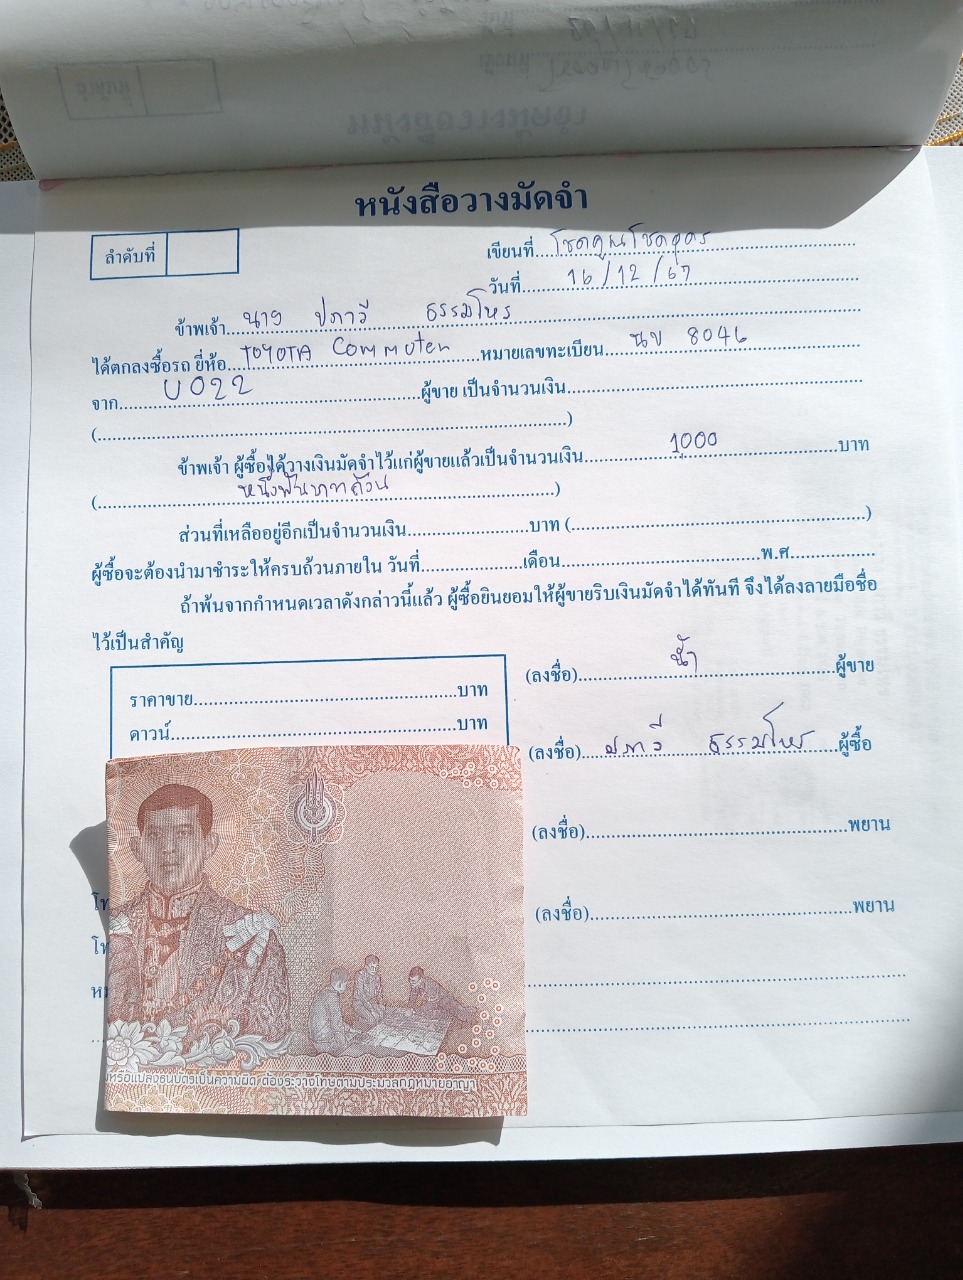 หนังสือวางมัดจำ
ลำดับที่
เขียนที่ โชคคูณโชคอุดร
วันที่ 16/12/67
ข้าพเจ้า นาง ปภาวี ธรรมโหร
ได้ตกลงซื้อรถ ยี่ห้อ TOYOTA Commuter หมายเลขทะเบียน นข 8046
จาก U022 ผู้ขาย เป็นจำนวนเงิน
(....)
ข้าพเจ้า ผู้ซื้อได้วางเงินมัดจำไว้แก่ผู้ขายแล้วเป็นจำนวนเงิน 1000 บาท
(หนึ่งพันบาทถ้วน)
ส่วนที่เหลืออยู่อีกเป็นจำนวนเงิน....บาท (....)
ผู้ซื้อจะต้องนำมาชำระให้ครบถ้วนภายใน วันที่....เดือน....พ.ศ....
ถ้าพ้นจากกำหนดเวลาดังกล่าวนี้แล้ว ผู้ซื้อยินยอมให้ผู้ขายริบเงินมัดจำได้ทันที จึงได้ลงลายมือชื่อ
ไว้เป็นสำคัญ
ราคาขาย....บาท
ดาวน์....บาท
(ลงชื่อ) น้ำ ผู้ขาย
(ลงชื่อ) ปภาวี ธรรมโหร ผู้ซื้อ
(ลงชื่อ)....พยาน
(ลงชื่อ)....พยาน
หรือแปลงธนบัตรเป็นความผิด ต้องระวางโทษตามประมวลกฎหมายอาญา